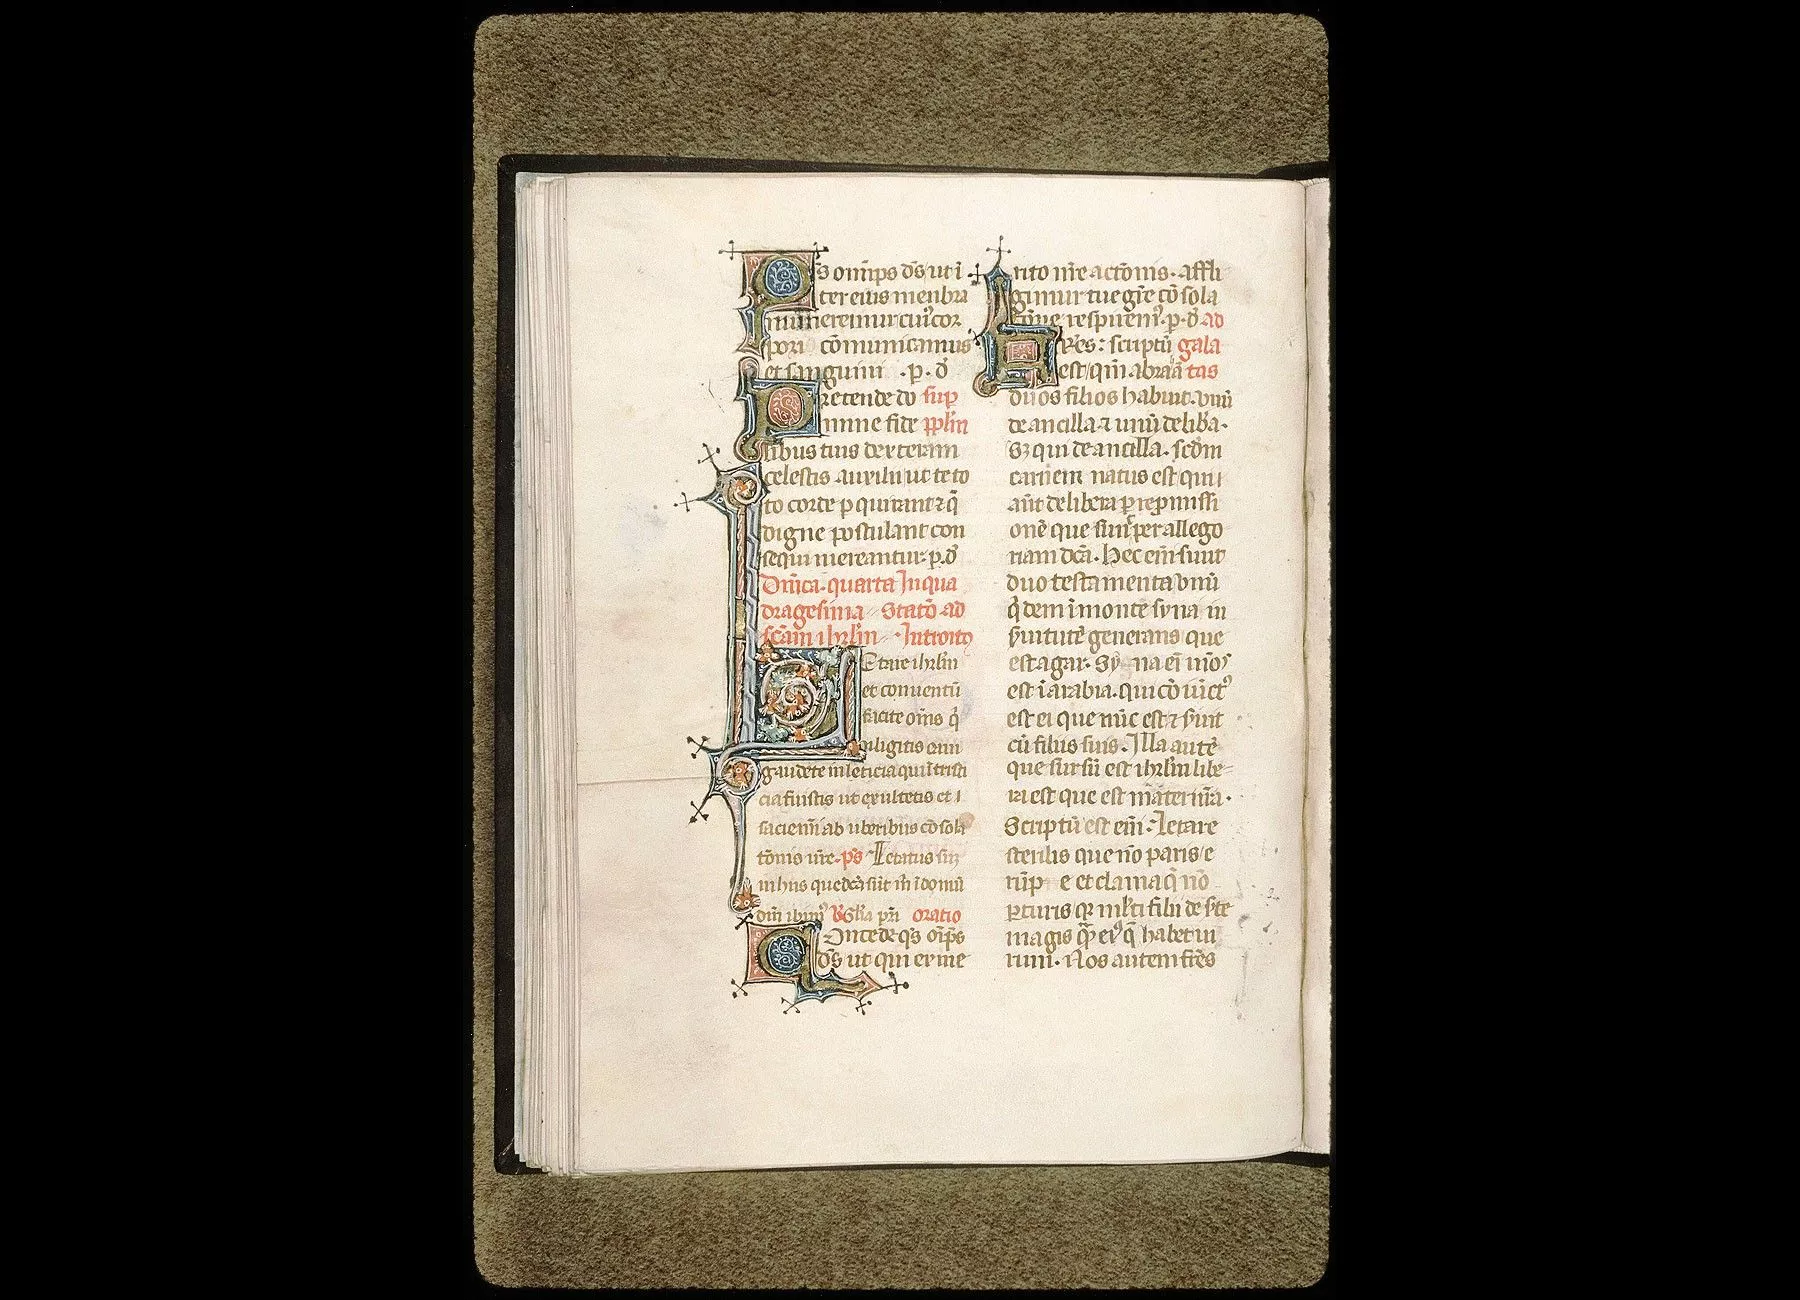 Q̄s om̄ips d̄s ut ī
ter eius menbra
numeremur cui᷒ cor
pori cōmunicamus
et sanguini . p . d̄
Pretende dō sup̱
omne fide pp̄l̄m
libus tuis dexteram
celestis auxilii ut te to
to corde p̱quirant ⁊ q̄
digne postulant con
sequi mereantur . p . d̄
Dn̄ica . quarta In qua
dragesima Statō ad
sc̄am ihrl̄m . Introito
Letare ihrl̄m
et conuentū
facite om̄s q̄
diligitis eam
gaudete in leticia qui ī tristi
cia fuistis ut exultetis et
saciemī ab uberibus cōsola
tōnis ur̄e . ps̄ Letatus sū
in hiis que dc̄a sūt m̄ ī domū
dn̄i ibim᷒ V̄ Gl̄ia pr̄i oratio
Concede q̄s om̄ps
d̄s ut qui ex me
rito nr̄e actōnis . affli
gimur tue gr̄e cōsola
tōne respirem᷒ . p . d̄ ad
Fr̄es : scriptū gala
est qm̄ abraā tas
duos filios habuit . unū
de ancilla ⁊ unū de lib̄a .
Sꝫ qui de ancilla . scd̄m
carnem natus est qui
aūt de libera p̱ repmissi
onē que sunt per allego
riam dc̄a . Hec em̄ sunt
duo testamenta unū
q̄dem ī monte syna in
s̄uitutē generans que
est agar . Sy na ei᷒ mōs
est ī arabia . qui cōiūct᷒
est ei que nūc est ⁊ s̄uit
cū filiis suis . Illa autē
que sursū est ihrl̄m libe
ra est que est mater nr̄a .
Scriptū est em̄ : Letare
sterilis que nō paris e
rūp e et clama q̄ nō
p̱turis qꝛ ml̄ti filii de s̄te
magis q̄ȝ ei᷒ q̄ habet ui
rum . Nos autem fr̄es